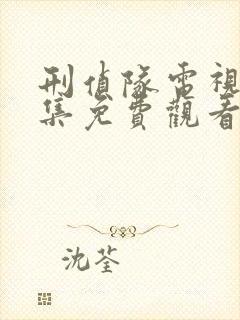 刑偵隊電視
集免費觀看
沈荃